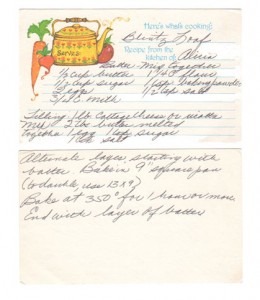 Here's what's cooking:
Blintz Loaf
Serves:
Recipe from the kitchen of
Batter Mix Together
1/2 cup butter
1/2 cup sugar
2 eggs
3/4 C milk
1 tsp baking powder
1/2 tsp salt
Filling 1 lb Cottage Cheese or
Mix
together 1 egg 1 tsp sugar
1 tsp salt
Alternate layer starting with
batter Bake in 9" square pan
(to double, use 13x9)
Bake at 350° for 1 hour or more
End with layer of batter